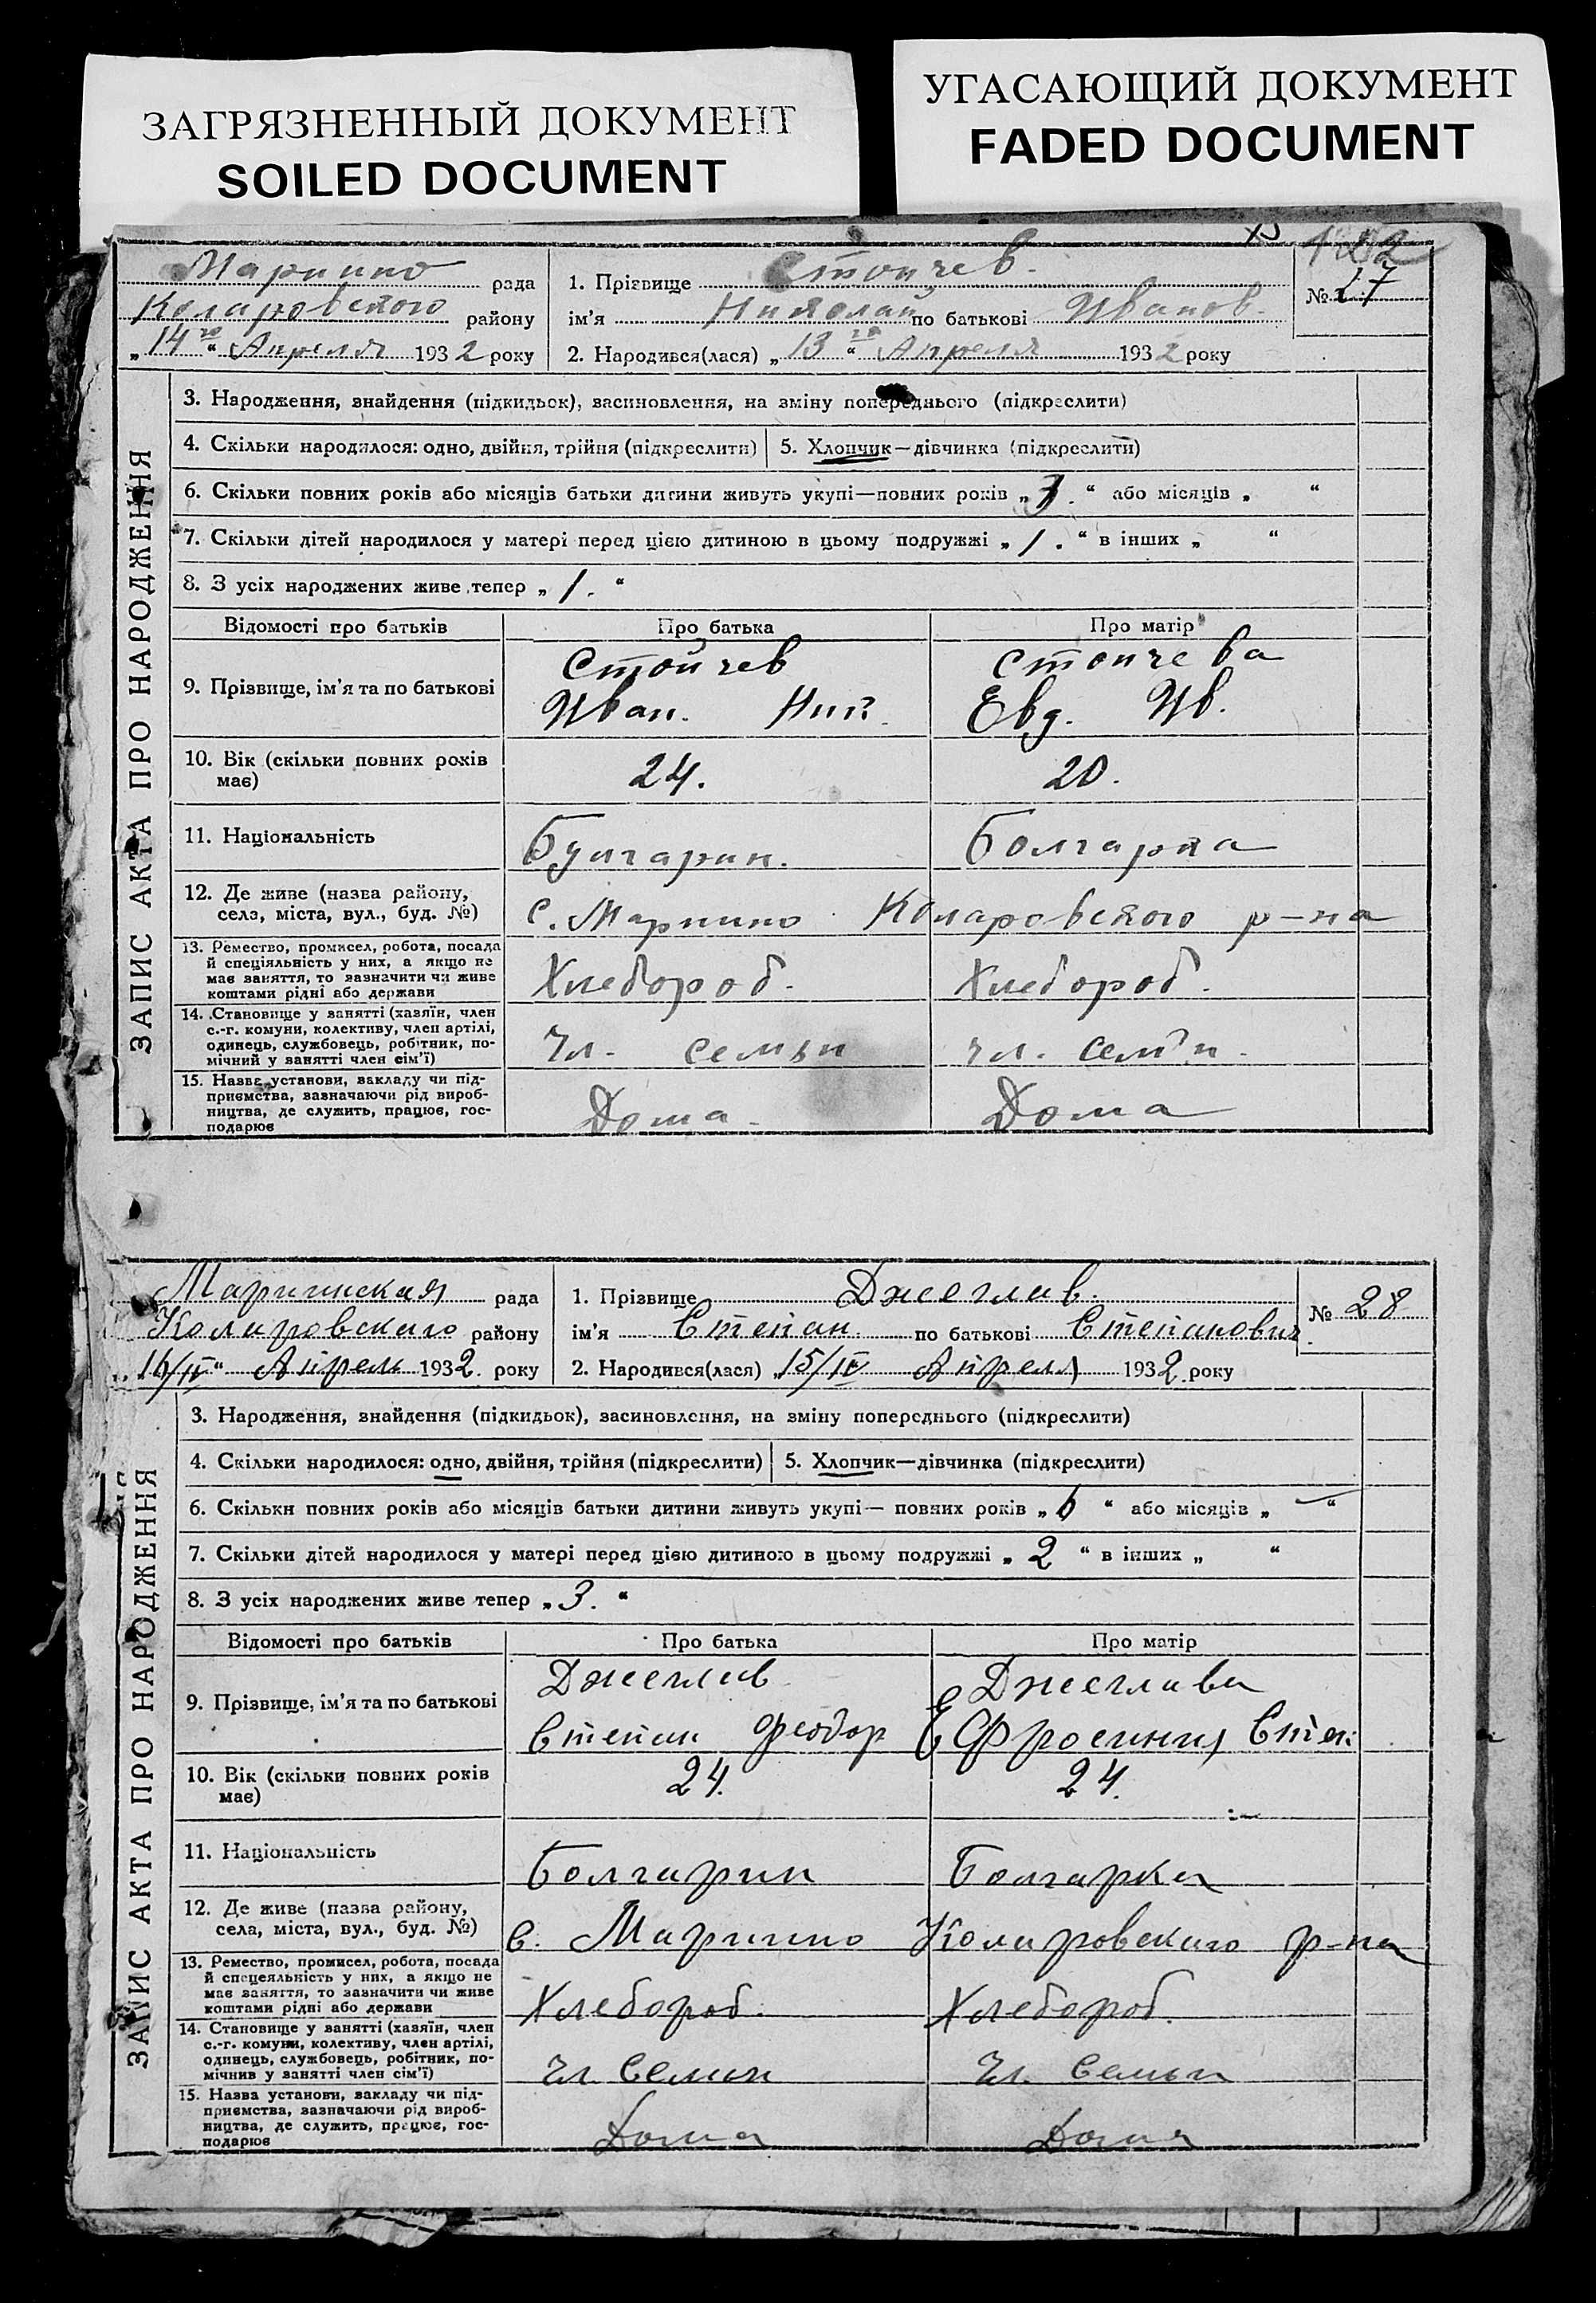 ЗАГРЯЗНЕННЫЙ ДОКУМЕНТ
SOILED DOCUMENT
УГАСАЮЩИЙ ДОКУМЕНТ
FADED DOCUMENT
ЗАПИС АКТА ПРО НАРОДЖЕННЯ
Марпино рада
Коларовского району
„14го“ Апреля 1932 року
1. Прізвище Стойчев.
ім'я Николай по батькові Иванов.
2. Народився(лася) „13го“ Апреля 1932 року
№ 27
3. Народження, знайдення (підкидьок), засиновлення, на зміну попереднього (підкреслити)
4. Скільки народилося: одно, двійня, трійня (підкреслити) 5. Хлопчик—дівчинка (підкреслити)
6. Скільки повних років або місяців батьки дитини живуть укупі—повних років „3.“ або місяців „ “
7. Скільки дітей народилося у матері перед цією дитиною в цьому подружжі „1.“ в інших „ “
8. З усіх народжених живе тепер „1.“
Відомості про батьків Про батька Про матір
9. Прізвище, ім'я та по батькові
Стойчев Стоичева
Иван. Ник. Евд. Ив.
10. Вік (скільки повних років має) 24. 20.
11. Національність Булгарин. Болгарка
12. Де живе (назва району, села, міста, вул., буд. №) с. Марпино Коларовского р-на
13. Ремество, промисел, робота, посада
й спеціяльність у них, а якщо не
має заняття, то зазначити чи живе
коштами рідні або держави
Хлебороб. Хлебороб.
14. Становище у занятті (хазяїн, член
с.-г. комуни, колективу, член артілі,
одинець, службовець, робітник, по-
мічний у занятті член сім'ї)
Чл. семьи чл. семьи.
15. Назва установи, закладу чи під-
приємства, зазначаючи рід вироб-
ництва, де служить, працює, гос-
подарює
Дома. Дома
ЗАПИС АКТА ПРО НАРОДЖЕННЯ
Мариинская рада
Коларовского району
„16/IV“ Апрель 1932. року
1. Прізвище Джеглав.
ім'я Степан. по батькові Степанович
2. Народився(лася) „15/IV Апреля 1932. року
№ 28
3. Народження, знайдення (підкидьок), засиновлення, на зміну попереднього (підкреслити)
4. Скільки народилося: одно, двійня, трійня (підкреслити) 5. Хлопчик—дівчинка (підкреслити)
6. Скільки повних років або місяців батьки дитини живуть укупі— повних років „6“ або місяців „—“
7. Скільки дітей народилося у матері перед цією дитиною в цьому подружжі „2“ в інших „ “
8. З усіх народжених живе тепер „3.“
Відомості про батьків Про батька Про матір
9. Прізвище, ім'я та по батькові
Джеглав Джеглава
Степан Феодор Ефросиния Степ
10. Вік (скільки повних років має) 24. 24.
11. Національність Болгарин Болгарка
12. Де живе (назва району, села, міста, вул., буд. №) с. Марпино Коларовского р-на
13. Ремество, промисел, робота, посада
й спецеяльність у них, а якщо не
має заняття, то зазначити чи живе
коштами рідні або держави
Хлебороб. Хлебороб.
14. Становище у занятті (хазяїн, член
с.-г. комуни, колективу, член артілі,
одинець, службовець, робітник, по-
мічнив у занятті член сім'ї)
Чл. Семьи Чл. Семьи
15. Назва установи, закладу чи під-
приємства, зазначаючи рід вироб-
ництва, де служить, працює, гос-
подарює
Дома Дома